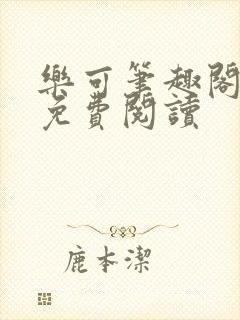 樂可筆趣閣
免費閱讀
鹿本潔